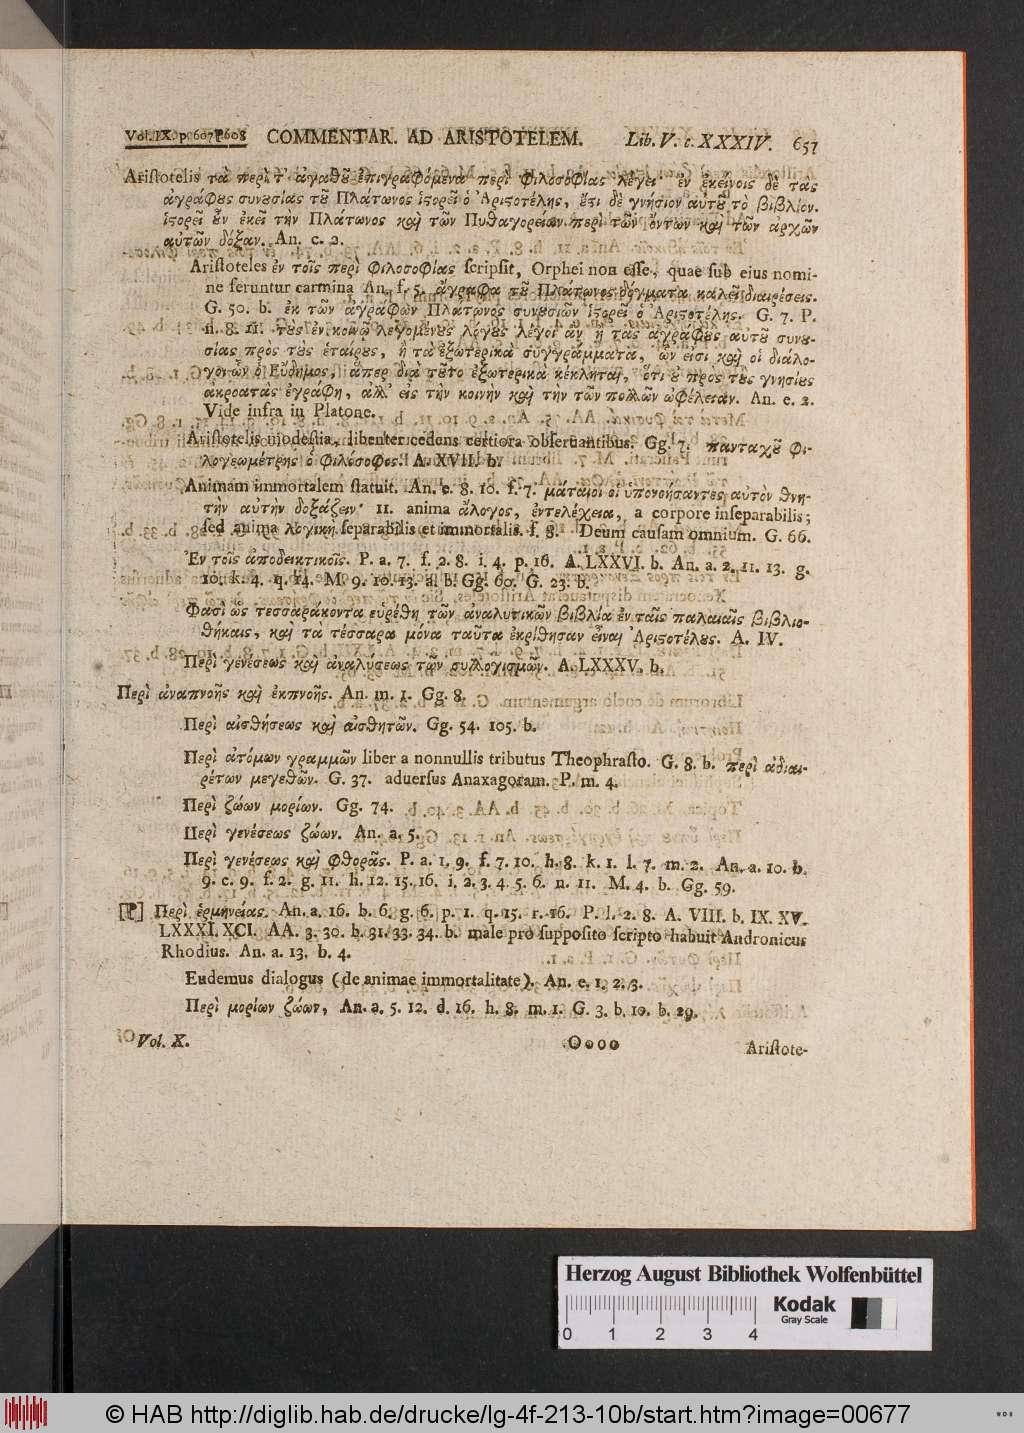 Vol. IX. p. 607 p. 608 COMMENTAR. AD ARISTOTELEM. Lib. V. c. XXXIV. 657
Aristotelis τὰ περὶ τ' ἀγαθȣ͂ ἐπιγραφόμενα περὶ φιλοσοφίας λέγει· ἐν ἐκείνοις δὲ τὰς
ἀγράφȣς συνȣσίας τȣ͂ Πλάτωνος ἱϛορεῖ ὁ Ἀριϛοτέλης, ἔϛι δὲ γνήσιον αὐτȣ͂ τὸ βιβλίον.
ἱϛορεῖ ȣ̓͂ν ἐκεῖ τὴν Πλάτωνος καὶ τῶν Πυθαγορείων περὶ τῶν ὄντων καὶ τῶν ἀρχῶν
αὐτῶν δόξαν. An. c. 2.
Aristoteles ἐν τοῖς περὶ φιλοσοφίας scripsit, Orphei non esse, quae sub eius nomi-
ne feruntur carmina An. f. 5. ἄγραφα τȣ͂ Πλάτωνος δόγματα καλεῖ διαιρέσεις.
G. 50. b. ἐκ τῶν ἀγράφων Πλάτωνος συνȣσιῶν ἱϛορεῖ ὁ Ἀριϛοτέλης. G. 7. P.
n. 8. 11. τȣ̀ς ἐν κοινῷ λεγομένȣς λόγȣς λέγοι ἂν ἢ τὰς ἀγράφȣς αὐτȣ͂ συνȣ-
σίας πρὸς τȣ̀ς ἑταίρȣς, ἢ τὰ ἐξωτερικὰ συγγράμματα, ὧν εἰσι καὶ οἱ διάλο-
γοι ὧν ὁ Εὔδημος, ἅπερ διὰ τȣ͂το ἐξωτερικὰ κέκληται, ὅτι ȣ̓ πρὸς τȣ̀ς γνησίȣς
ἀκροατὰς ἐγράφη, ἀλλ' εἰς τὴν κοινὴν καὶ τὴν τῶν πολλῶν ὠφέλειαν. An. e. 2.
Vide infra in Platone.
Aristotelis modestia, libenter cedens certiora obseruantibus. Gg. 7. πανταχȣ͂ φι-
λογεωμέτρης ὁ φιλόσοφος. A. XVII. b.
Animam immortalem statuit. An. e. 8. 10. f. 7. μάταιοι οἱ ὑπονοήσαντες αὐτὸν θνη-
τὴν αὐτὴν δοξάζειν· 11. anima ἄλογος, ἐντελέχεια, a corpore inseparabilis;
sed anima λογικὴ separabilis et immortalis. f. 8. Deum causam omnium. G. 66.
Ἐν τοῖς ἀποδεικτικοῖς. P. a. 7. f. 2. 8. i. 4. p. 16. A. LXXVI. b. An. a. 2. 11. 13. g.
10. k. 4. q. 14. M. 9. 10. 13. a. b. Gg. 60. G. 23. b.
Φασὶ ὡς τεσσαράκοντα εὑρέθη τῶν ἀναλυτικῶν βιβλία ἐν ταῖς παλαιαῖς βιβλιο-
θήκαις, καὶ τὰ τέσσαρα μόνα ταῦτα ἐκρίθησαν εἶναι Ἀριϛοτέλȣς. A. IV.
Περὶ γενέσεως καὶ ἀναλύσεως τῶν συλλογισμῶν. A. LXXXV. b.
Περὶ ἀναπνοῆς καὶ ἐκπνοῆς. An. m. 1. Gg. 8.
Περὶ αἰσθήσεως καὶ αἰσθητῶν. Gg. 54. 105. b.
Περὶ ἀτόμων γραμμῶν liber a nonnullis tributus Theophrasto. G. 8. b. περὶ ἀδιαι-
ρέτων μεγεθῶν. G. 37. aduersus Anaxagoram. P. m. 4.
Περὶ ζώων μορίων. Gg. 74.
Περὶ γενέσεως ζώων. An. a. 5.
Περὶ γενέσεως καὶ φθορᾶς. P. a. 1. 9. f. 7. 10. h. 8. k. 1. l. 7. m. 2. An. a. 10. b.
9. c. 9. f. 2. g. 11. h. 12. 15. 16. i. 2. 3. 4. 5. 6. n. 11. M. 4. b. Gg. 59.
[P] Περὶ ἑρμηνείας. An. a. 16. b. 6. g. 6. p. 1. q. 15. r. 16. P. l. 2. 8. A. VIII. b. IX. XV.
LXXXI. XCI. AA. 3. 30. b. 31. 33. 34. b. male pro supposito scripto habuit Andronicus
Rhodius. An. a. 13. b. 4.
Eudemus dialogus (de animae immortalitate). An. e. 1. 2. 3.
Περὶ μορίων ζώων, An. a. 5. 12. d. 16. h. 8. m. 1. G. 3. b. 10. b. 29.
Vol. X. Oooo Aristote-
Herzog August Bibliothek Wolfenbüttel
Kodak
Gray Scale
0 1 2 3 4
© HAB http://diglib.hab.de/drucke/lg-4f-213-10b/start.htm?image=00677